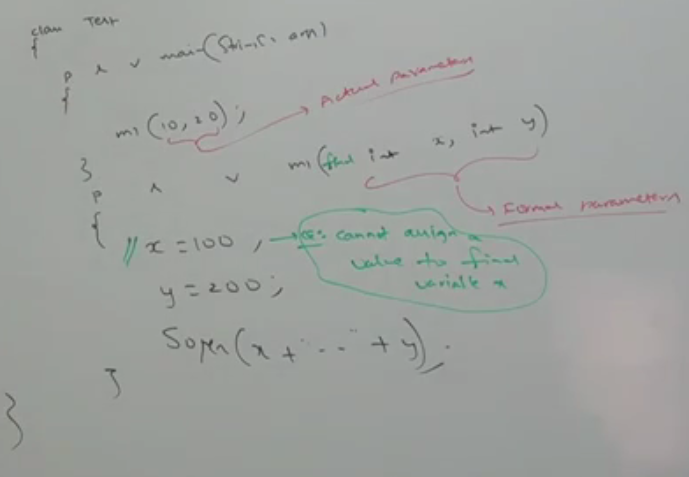 class Test
{
p s v main(String[] args)
{
m1(10,20); → Actual Parameters
}
p s v m1(final int x, int y) → Formal Parameters
{
// x=100; → CE: cannot assign a value to final variable x
y=200;
Sopln(x+"..."+y);
}
}